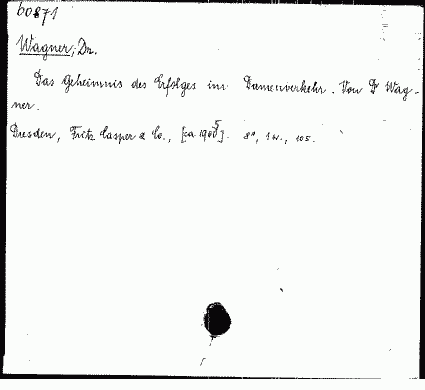 60871
Wagner, Dr.
Das Geheimnis des Erfolges im Damenverkehr. Von Dr Wag-
ner.
Dresden, Fritz Casper & Co., [ca 1905]. 8°, 1 w., 105.